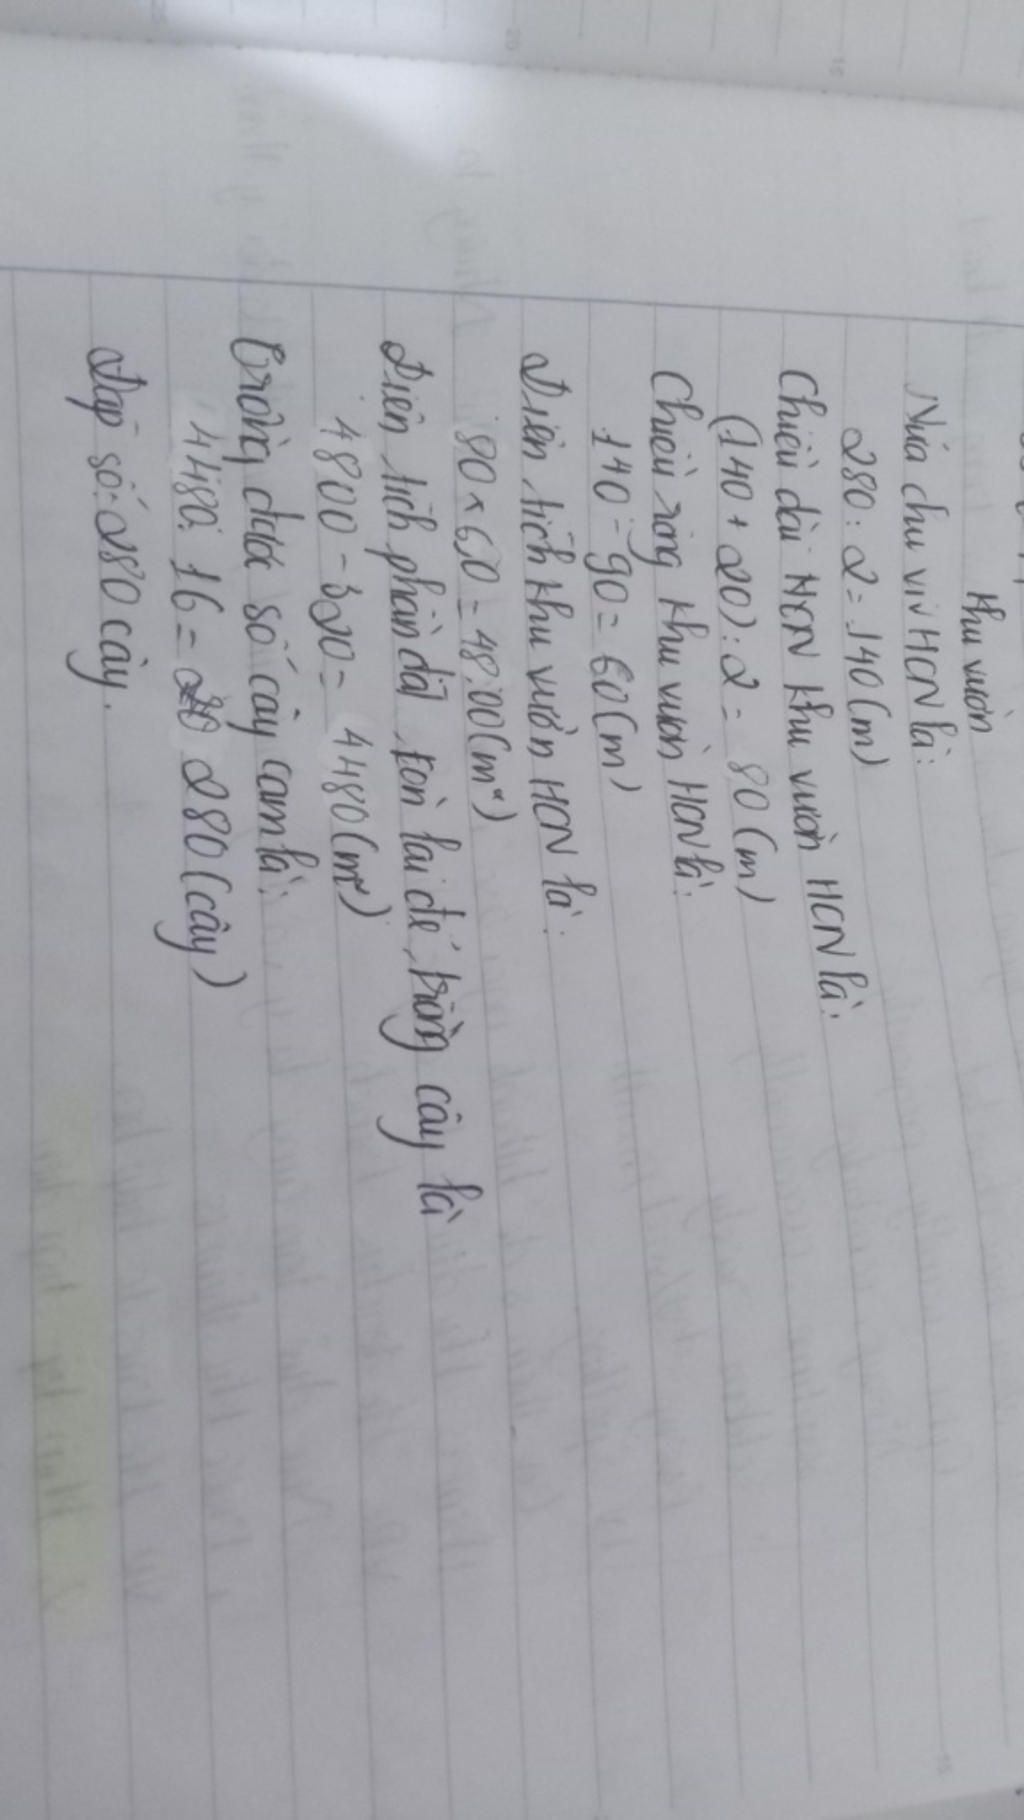 khu vườn
Nửa chu vi HCN là:
280 : 2 = 140 (m)
Chiều dài HCN khu vườn HCN là:
(140 + 20) : 2 = 80 (m)
Chiều rộng khu vườn HCN là:
140 - 90 = 60 (m)
Diện tích khu vườn HCN là:
80 x 60 = 4800 (m²)
Diện tích phần đất còn lại để trồng cây là
4800 - 320 = 4480 (m²)
Trồng được số cây cam là:
4480 : 16 = 280 (cây)
Đáp số: 280 cây.